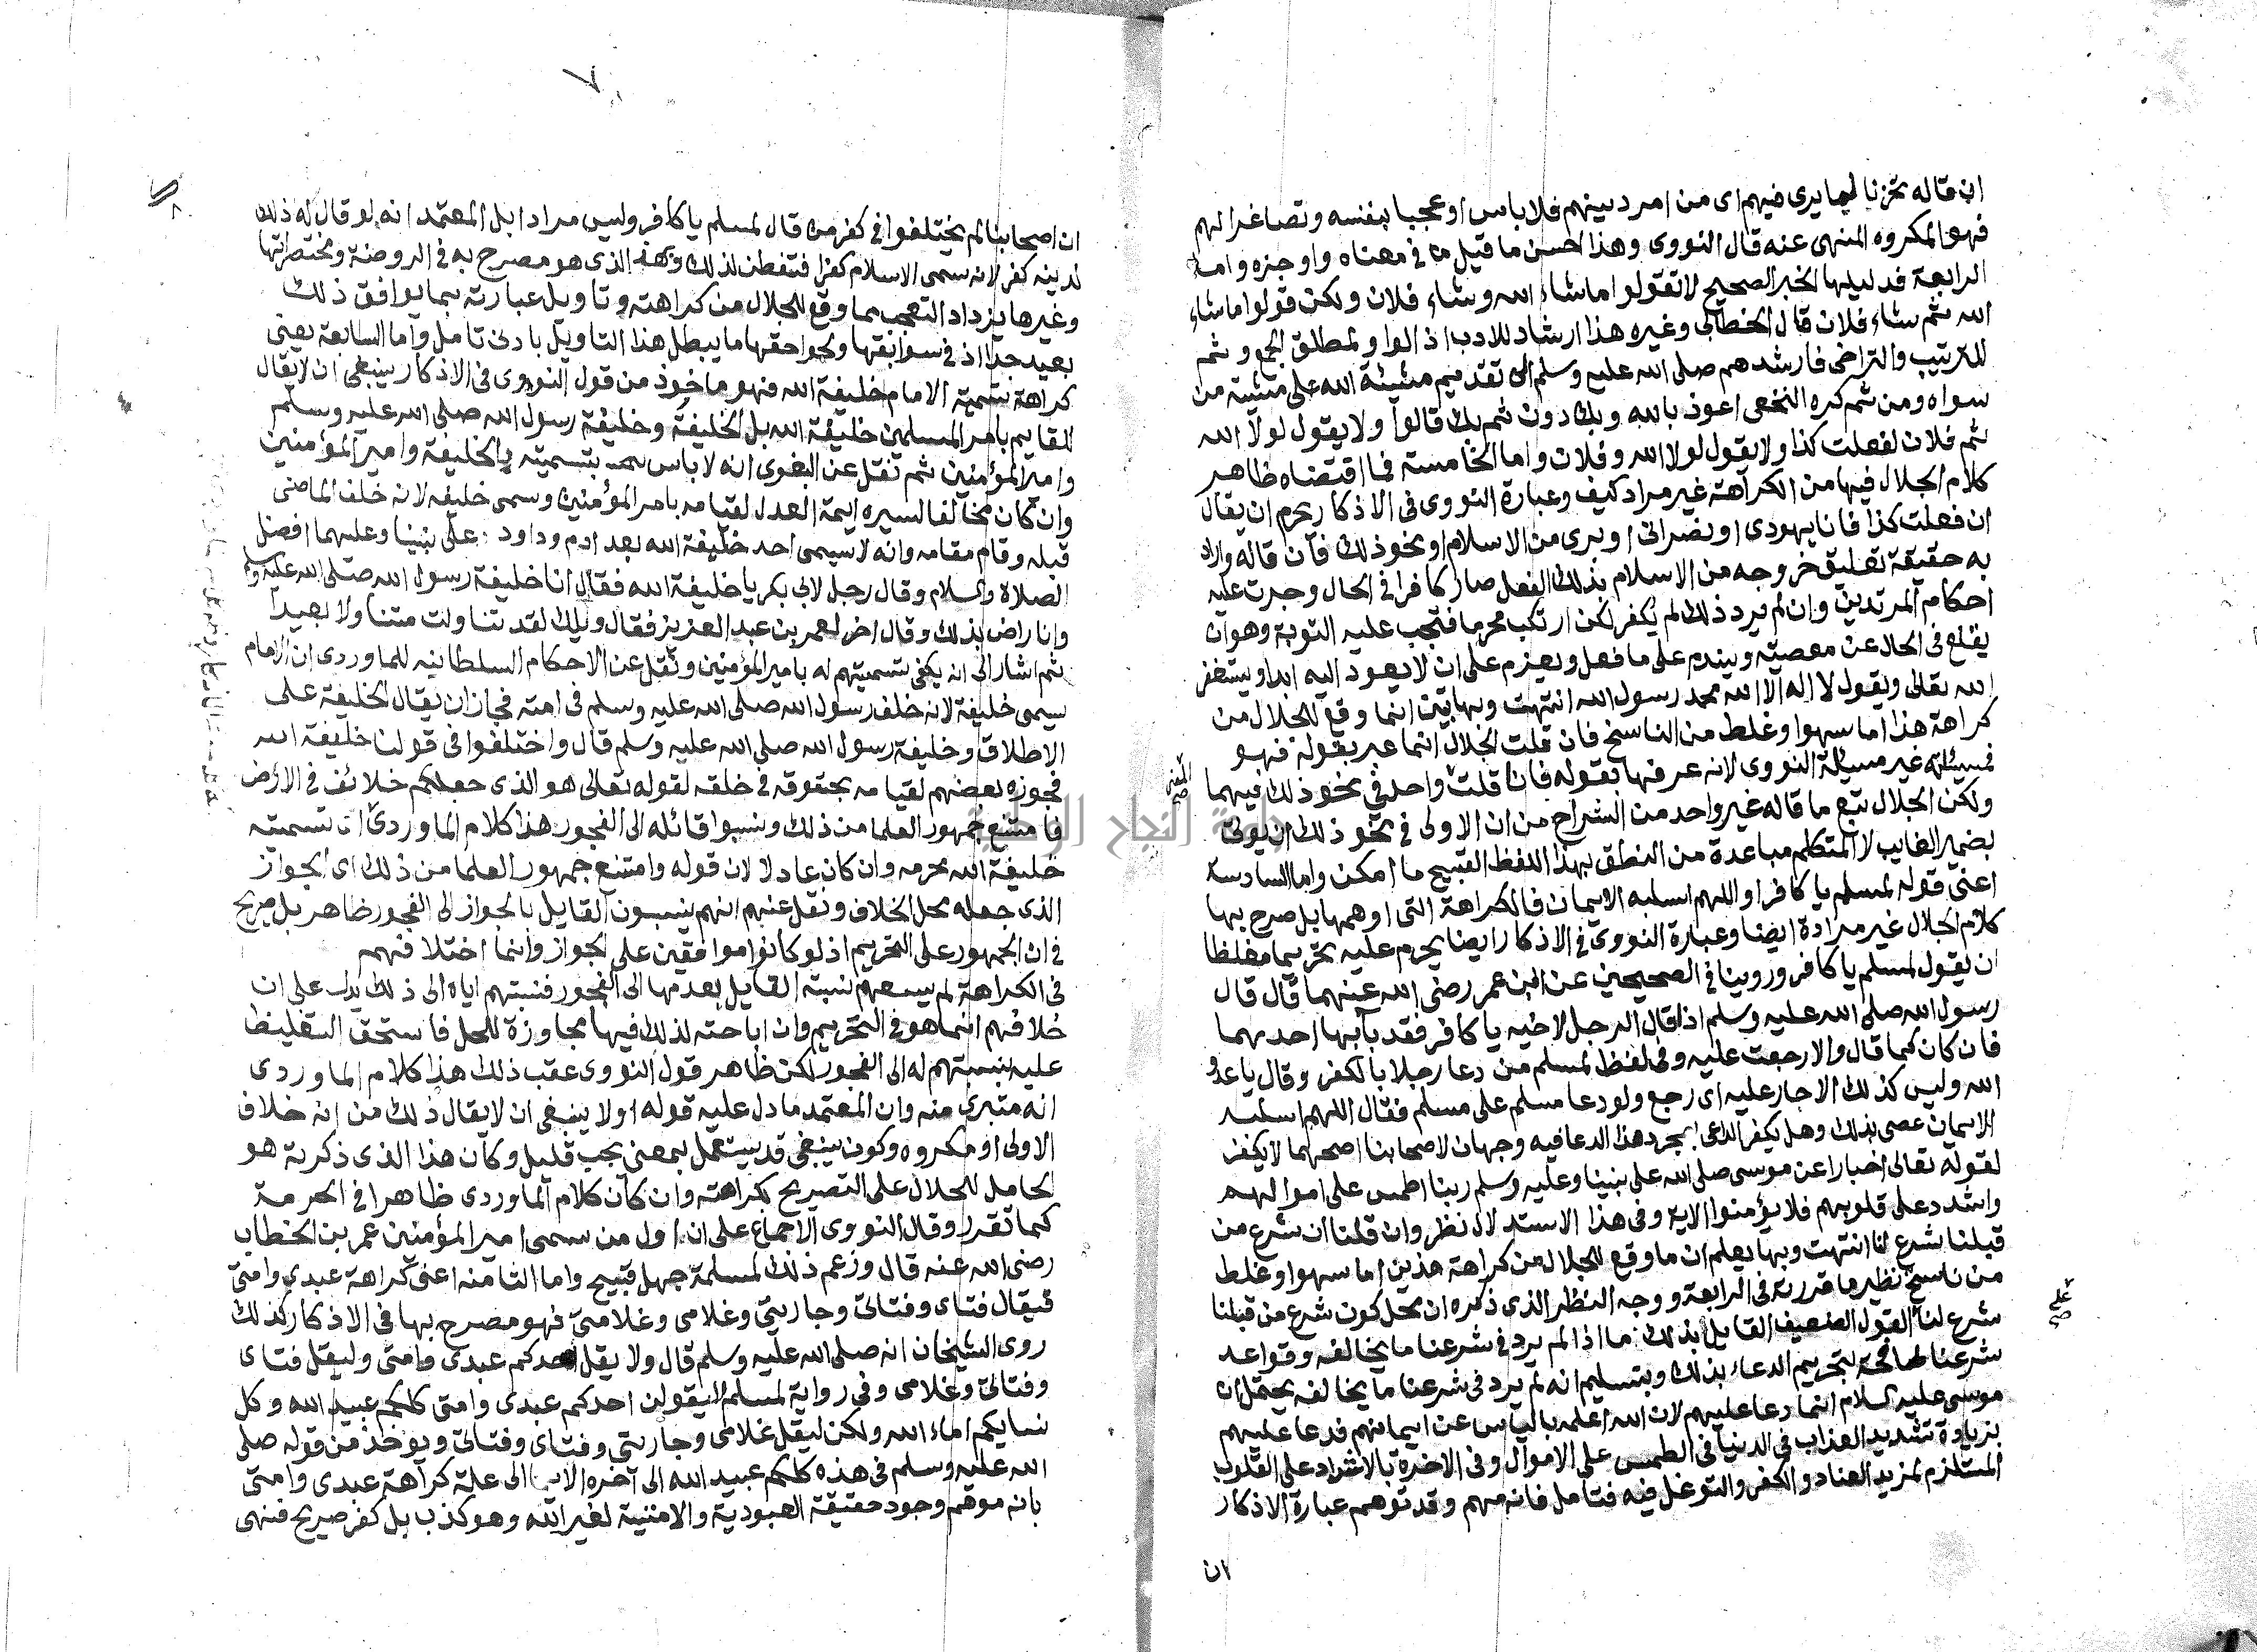 ان قاله تحزنا لما يرى فيهم اى من امر دينهم فلا باس او عجبا بنفسه وتصاغرا لهم
فهو المكروه المنهى عنه قال النووى وهذا احسن ما قيل فى معناه واوجزه واما
الرابعة فدليلها الخبر الصحيح لا تقولوا ما شاء الله وشاء فلان ولكن قولوا ما شاء
الله ثم شاء فلان قال الخطابى وغيره هذا ارشاد للادب اذ الواو لمطلق الجمع وثم
للترتيب والتراخى فارشدهم صلى الله عليه وسلم الى تقديم مشيئة الله على مشيئة من
سواه ومن ثم كره النخعى اعوذ بالله وبك دون ثم بك قالوا ولا يقول لولا الله
ثم فلان لفعلت كذا ولا يقول لولا الله وفلان واما الخامسة فما اقتضاه ظاهر
كلام الجلال فيها من الكراهة غير مراد كيف وعبارة النووى فى الاذكار يحرم ان يقال
ان فعلت كذا فانا يهودى او نصرانى او برى من الاسلام او نحو ذلك فان قاله واراد
به حقيقة تعليق خروجه من الاسلام بذلك الفعل صار كافرا فى الحال وجرت عليه
احكام المرتدين وان لم يرد ذلك لم يكفر لكن ارتكب محرما فتجب عليه التوبة وهو ان
يقلع فى الحال عن معصيته ويندم على ما فعل ويعزم على ان لا يعود اليه ابدا ويستغفر
الله تعالى ويقول لا اله الا الله محمد رسول الله انتهت وبها تبين انما وقع للجلال من
كراهة هذا اما سهوا وغلط من الناسخ فان قلت الجلال انما عبر بقوله فهو
فمسئلته غير مسئلة النووى لانه عر فيها بقوله فانا قلت واحد فى نحو ذلك فيهما
المعنى صح
ولكن الجلال تبع ما قاله غير واحد من الشراح من ان الاولى فى نحو ذلك ان يولى
بضمير الغايب لا المتكلم مباعدة من النطق بهذا اللفظ القبيح ما امكن واما السادسة
اعنى قوله لمسلم يا كافر او اللهم اسلبه الايمان فالكراهة التى اوهمها بل صرح بها
كلام الجلال غير مرادة ايضا وعبارة النووى فى الاذكار ايضا يحرم عليه تحريما مغلظا
ان يقول لمسلم يا كافر وروينا فى الصحيحين عن ابن عمر رضى الله عنهما قال قال
رسول الله صلى الله عليه وسلم اذا قال الرجل لاخيه يا كافر فقد باء بها احدهما
فان كان كما قال والا رجعت عليه وفى لفظ لمسلم من دعا رجلا بالكفر وقال يا عدو
الله وليس كذلك الا حار عليه اى رجع ولو دعا مسلم على مسلم فقال اللهم اسلبه
الايمان عصى بذلك وهل يكفر الداعى بمجرد هذا الدعا فيه وجهان لاصحابنا اصحهما لا يكفر
لقوله تعالى اخبارا عن موسى صلى الله على نبينا وعليه وسلم ربنا اطمس على اموالهم
واشدد على قلوبهم فلا يؤمنوا الاية وفى هذا الاستدلال نظر وان قلنا ان شرع من
قبلنا شرع لنا انتهت وبها يعلم ان ما وقع للجلال من كراهة هذين اما سهوا وغلط
من ناسخ نظير ما قررته فى الرابعة ووجه النظر الذى ذكره ان محل كون شرع من قبلنا
على صح
شرع لنا القول الضعيف القايل بذلك ما اذا لم يرد فى شرعنا ما يخالفه وقواعد
شرعنا طافحة بتحريم الدعاء بذلك وبتسليم انه لم يرد فى شرعنا ما يخالفه يحتمل ان
موسى عليه السلام انما دعا عليهم لان الله اعلمه بالياس عن ايمانهم فدعا عليهم
بزيادة تشديد العذاب فى الدنيا فى الطمس على الاموال وفى الاخرة بالاشداد على القلوب
المستلزم لمزيد العناد والكفر والتوغل فيه فتامل فانه مهم وقد توهم عبارة الاذكار
ان
ان اصحابنا لم يختلفوا فى كفر من قال لمسلم يا كافر وليس مرادا بل المعتمد انه لو قال له ذلك
لدينه كفر لانه سمى الاسلام كفرا فتفطن لذلك وبهذا الذى هو مصرح به فى الروضة ومختصراتها
وغيرها يزداد التعجب مما وقع للجلال من كراهته وتاويل عبارته بما يوافق ذلك
بعيد جدا اذ فى سوابقها ولواحقها ما يبطل هذا التاويل بادنى تامل واما السابعة يعنى
كراهة تسمية الامام خليفة الله فهو ماخوذ من قول النووى فى الاذكار ينبغى ان لا يقال
للقايم بامر المسلمين خليفة الله بل الخليفة وخليفة رسول الله صلى الله عليه وسلم
وامير المؤمنين ثم نقل عن البغوى انه لا باس بتسميته بالخليفة وامير المؤمنين
وان كان مخالفا لسيره ايمة العدل لقيامه بامر المؤمنين وسمى خليفه لانه خلف الماضى
قبله وقام مقامه وانه لا سيمى احد خليفة الله بعد ادم وداود على نبينا وعليهما افضل
الصلاة والسلام وقال رجل لابى بكر يا خليفة الله فقال انا خليفة رسول الله صلى الله عليه وسلم
وانا راض بذلك وقال اخر لعمر بن عبد العزيز فقال ويلك لقد تناولت متنا ولا بعيدا
ثم اشار الى انه يكفى تسميتهم له بامير المؤمنين ونقل عن الاحكام السلطانيه للماوردى ان الامام
سيمى خليفة لانه خلف رسول الله صلى الله عليه وسلم فى امته فجاز ان يقال الخليفة على
الاطلاق وخليفة رسول الله صلى الله عليه وسلم قال واختلفوا فى قولنا خليفة الله
فجوزه بعضهم لقيامه بحقوقه فى خلقه لقوله تعالى هو الذى جعلكم خلائف فى الارض
وامتنع جمهور العلما من ذلك ونسبوا قائله الى الفجور هذا كلام الماوردى ان تسميته
خليفة الله محرمه وان كان عادلا لان قوله وامتنع جمهور العلما من ذلك اى الجواز
الذى جعله محل الخلاف ونقل عنهم انهم ينسبون القايل بالجواز الى الفجور ظاهر بل صريح
فى ان الجمهور على التحريم اذ لو كانوا موافقين على الجواز وانما اختلافهم
فى الكراهة لم يسعهم نسبة القايل بعدمها الى الفجور فنسبتهم اياه الى ذلك يدل على ان
خلافهم انما هو فى التحريم وان اباحته لذلك فيها مجاوزة للحل فاستحق التغليظ
عليه بنسبتهم له الى الفجور لكن ظاهر قول النووى عقب ذلك هذا كلام الماوردى
انه متبرى منه وان المعتمد ما دل عليه قوله اولا ينبغى ان لا يقال ذلك من انه خلاف
الاولى او مكروه وكون ينبغى قد يستعمل بمعنى يجب قليل وكان هذا الذى ذكرته هو
الحامل للجلال على التصريح بكراهته وان كان كلام الماوردى ظاهرا فى الحرمة
كما تقرر وقال النووى الاجماع على ان اول من سمى امير المؤمنين عمر بن الخطاب
رضى الله عنه قال وزعم ذلك لمسلمة جهل قبيح واما الثامنه اعنى كراهة عبدى وامتى
فيقال فتاى وفتاتى وجاريتى وغلامى وغلامتى فهو مصرح بها فى الاذكار كذلك
روى الشيخان انه صلى الله عليه وسلم قال ولا يقل احدكم عبدى وامتى وليقل فتاى
وفتاتى وغلامى وفى رواية لمسلم لا يقولن احدكم عبدى وامتى كلكم عبيد الله وكل
نسايكم اماء الله ولكن ليقل غلامى وجاريتى وفتاى وفتاتى ويوخذ من قوله صلى
الله عليه وسلم فى هذه كلكم عبيد الله الى آخره الى علة كراهة عبدى وامتى
بانه موهم وجود حقيقة العبودية والامتية لغير الله وهو كذب بل كفر صريح فنهى
جامعة النجاح الوطنية